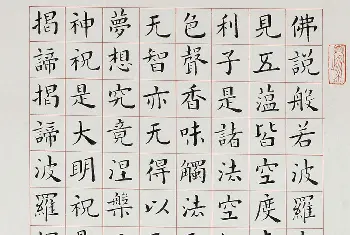 佛說般若波羅
見五蘊皆空度
利子是諸法空
色聲香味觸法
无智亦无得以
夢想究竟涅槃
神祝是大明祝
揭諦揭諦波羅